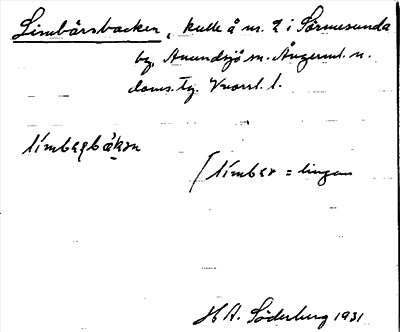 Limbärsbacken, kulle å nr. 2 i Sörmesunda
by, Anundsjö sn. Ångerml. n.
doms. tg. Vnorrl. l.
limbeṛbàkɐn
[limbeṛ = lingon
H A. Söderberg 1931